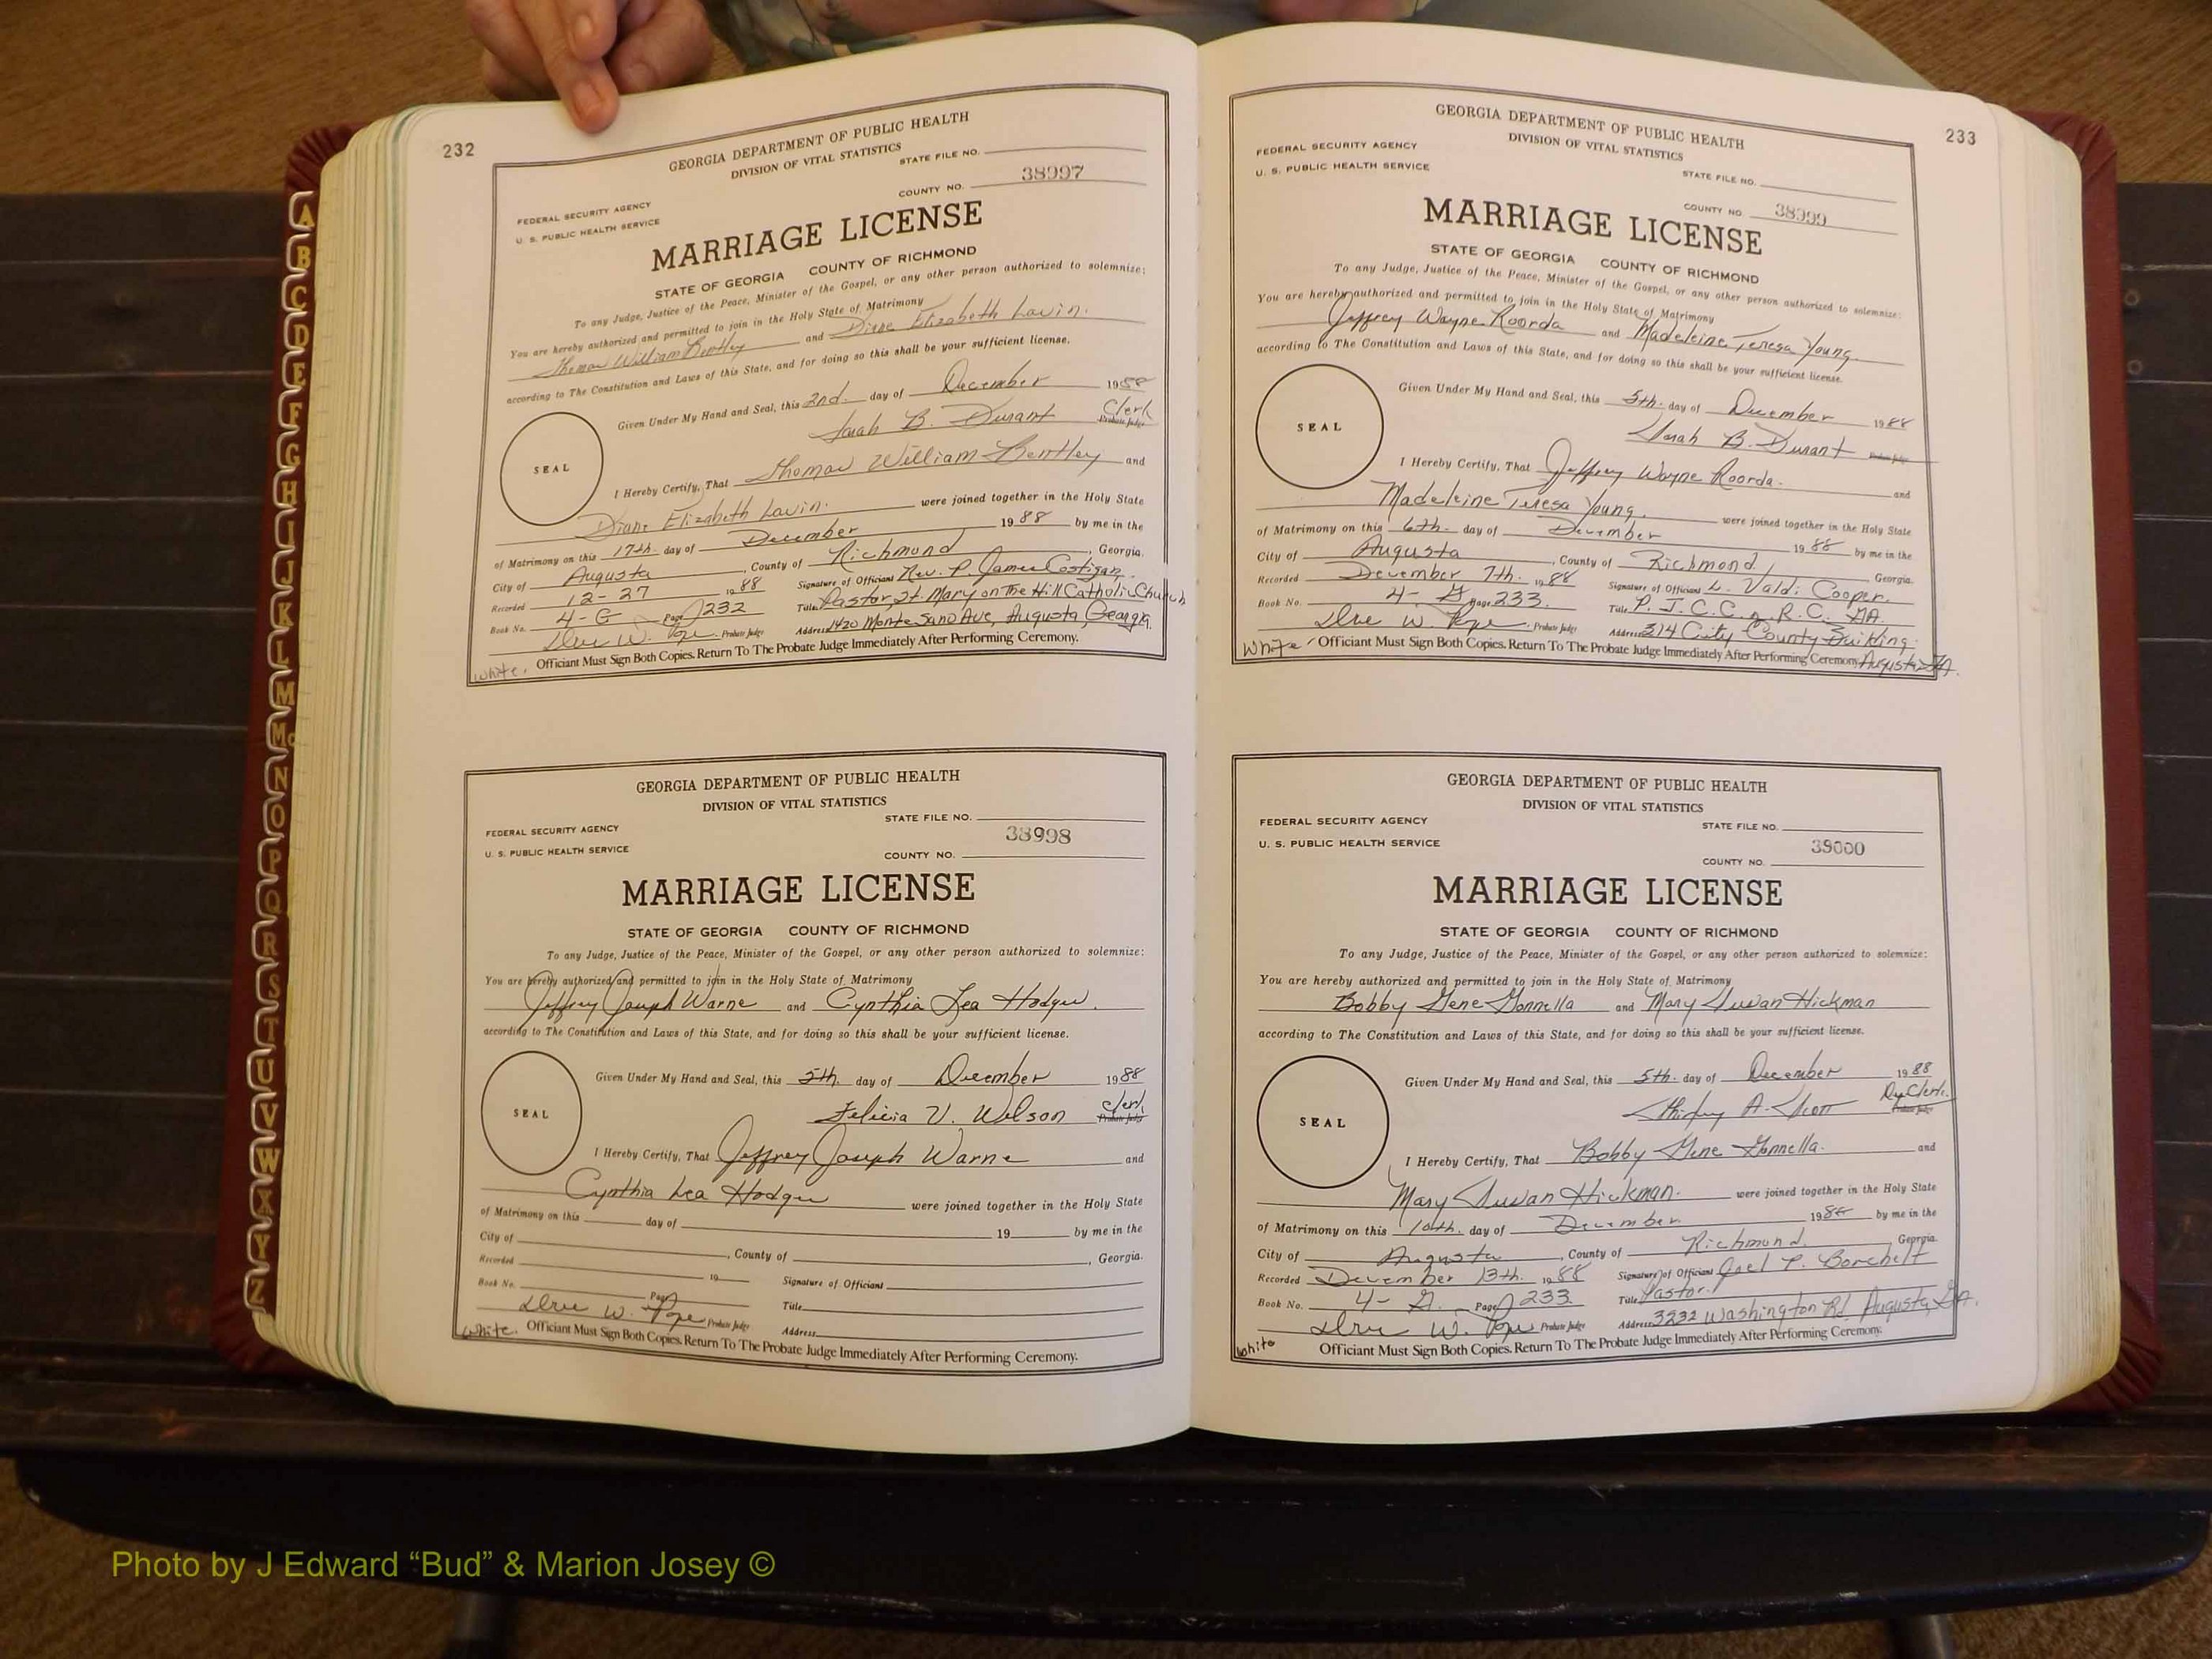 232
GEORGIA DEPARTMENT OF PUBLIC HEALTH
DIVISION OF VITAL STATISTICS
STATE FILE NO.
38997
COUNTY NO.
FEDERAL SECURITY AGENCY
U. S. PUBLIC HEALTH SERVICE
MARRIAGE LICENSE
STATE OF GEORGIA COUNTY OF RICHMOND
To any Judge, Justice of the Peace, Minister of the Gospel, or any other person authorized to solemnize:
You are hereby authorized and permitted to join in the Holy State of Matrimony
Thomas William Bentley and Diane Elizabeth Lavin.
according to The Constitution and Laws of this State, and for doing so this shall be your sufficient license.
Given Under My Hand and Seal, this 2nd. day of December 1988
Sarah B. Durant Clerk
Probate Judge
SEAL
I Hereby Certify, That Thomas William Bentley and
Diane Elizabeth Lavin. were joined together in the Holy State
of Matrimony on this 17th. day of December 1988 by me in the
City of Augusta, County of Richmond, Georgia.
Recorded 12-27 1988 Signature of Officiant Rev. P. James Costigan
Book No. 4-G Page 232 Title Pastor, St. Mary on The Hill Catholic Church
W. Pope Probate Judge Address 1420 Monte Sano Ave, Augusta, Georgia.
White. Officiant Must Sign Both Copies. Return To The Probate Judge Immediately After Performing Ceremony.
GEORGIA DEPARTMENT OF PUBLIC HEALTH
DIVISION OF VITAL STATISTICS
STATE FILE NO.
38998
COUNTY NO.
FEDERAL SECURITY AGENCY
U. S. PUBLIC HEALTH SERVICE
MARRIAGE LICENSE
STATE OF GEORGIA COUNTY OF RICHMOND
To any Judge, Justice of the Peace, Minister of the Gospel, or any other person authorized to solemnize:
You are hereby authorized and permitted to join in the Holy State of Matrimony
Jeffrey Joseph Warne and Cynthia Lea Hodges.
according to The Constitution and Laws of this State, and for doing so this shall be your sufficient license.
Given Under My Hand and Seal, this 5th. day of December 1988
Felicia V. Wilson Clerk
Probate Judge
SEAL
I Hereby Certify, That Jeffrey Joseph Warne and
Cynthia Lea Hodges were joined together in the Holy State
of Matrimony on this day of 19 by me in the
City of , County of , Georgia.
Recorded 19 Signature of Officiant
Book No. Page Title
W. Pope Probate Judge Address
White. Officiant Must Sign Both Copies. Return To The Probate Judge Immediately After Performing Ceremony.
233
GEORGIA DEPARTMENT OF PUBLIC HEALTH
DIVISION OF VITAL STATISTICS
FEDERAL SECURITY AGENCY
U. S. PUBLIC HEALTH SERVICE
STATE FILE NO.
COUNTY NO. 38999
MARRIAGE LICENSE
STATE OF GEORGIA COUNTY OF RICHMOND
To any Judge, Justice of the Peace, Minister of the Gospel, or any other person authorized to solemnize:
You are hereby authorized and permitted to join in the Holy State of Matrimony
Jeffrey Wayne Roorda and Madeleine Teresa Young.
according to The Constitution and Laws of this State, and for doing so this shall be your sufficient license.
Given Under My Hand and Seal, this 5th. day of December 1988
Sarah B. Durant Probate Judge
SEAL
I Hereby Certify, That Jeffrey Wayne Roorda. and
Madeleine Teresa Young. were joined together in the Holy State
of Matrimony on this 6th. day of December 1988 by me in the
City of Augusta County of Richmond Georgia.
Recorded December 7th. 1988 Signature of Officiant L. Valdi Cooper.
Book No. 4-G Page 233. Title P. J. C. C. R. C. GA.
W. Pope. Probate Judge Address 314 City County Building
White Officiant Must Sign Both Copies. Return To The Probate Judge Immediately After Performing Ceremony. Augusta GA.
GEORGIA DEPARTMENT OF PUBLIC HEALTH
DIVISION OF VITAL STATISTICS
FEDERAL SECURITY AGENCY
STATE FILE NO.
U. S. PUBLIC HEALTH SERVICE
39000
COUNTY NO.
MARRIAGE LICENSE
STATE OF GEORGIA COUNTY OF RICHMOND
To any Judge, Justice of the Peace, Minister of the Gospel, or any other person authorized to solemnize:
You are hereby authorized and permitted to join in the Holy State of Matrimony
Bobby Gene Gonnella and Mary Susan Hickman
according to The Constitution and Laws of this State, and for doing so this shall be your sufficient license.
Given Under My Hand and Seal, this 5th. day of December 1988
Shirley A. Scott Dy Clerk.
Probate Judge
SEAL
I Hereby Certify, That Bobby Gene Gonnella. and
Mary Susan Hickman. were joined together in the Holy State
of Matrimony on this 10th. day of December 1988 by me in the
City of Augusta, County of Richmond. Georgia.
Recorded December 13th. 1988 Signature of Officiant Joel P. Borchelt
Book No. 4-G. Page 233. Title Pastor.
W. Pope Probate Judge Address 3232 Washington Rd. Augusta, GA.
White Officiant Must Sign Both Copies. Return To The Probate Judge Immediately After Performing Ceremony.
A
B
C
D
E
F
G
H
I
J
K
L
M
Mc
N
O
P
Q
R
S
T
U
V
W
X
Y
Z
Photo by J Edward “Bud” & Marion Josey ©